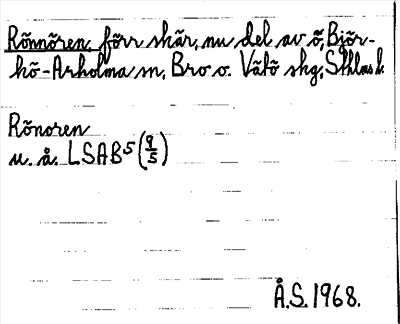 Rönnören, förr skär, nu del av ö, Björ-
kö-Arholma sn, Bro o. Vätö skg, Sthlms l.
Rönoren
u. å. LSAB⁵ (9/5)
Å.S. 1968.